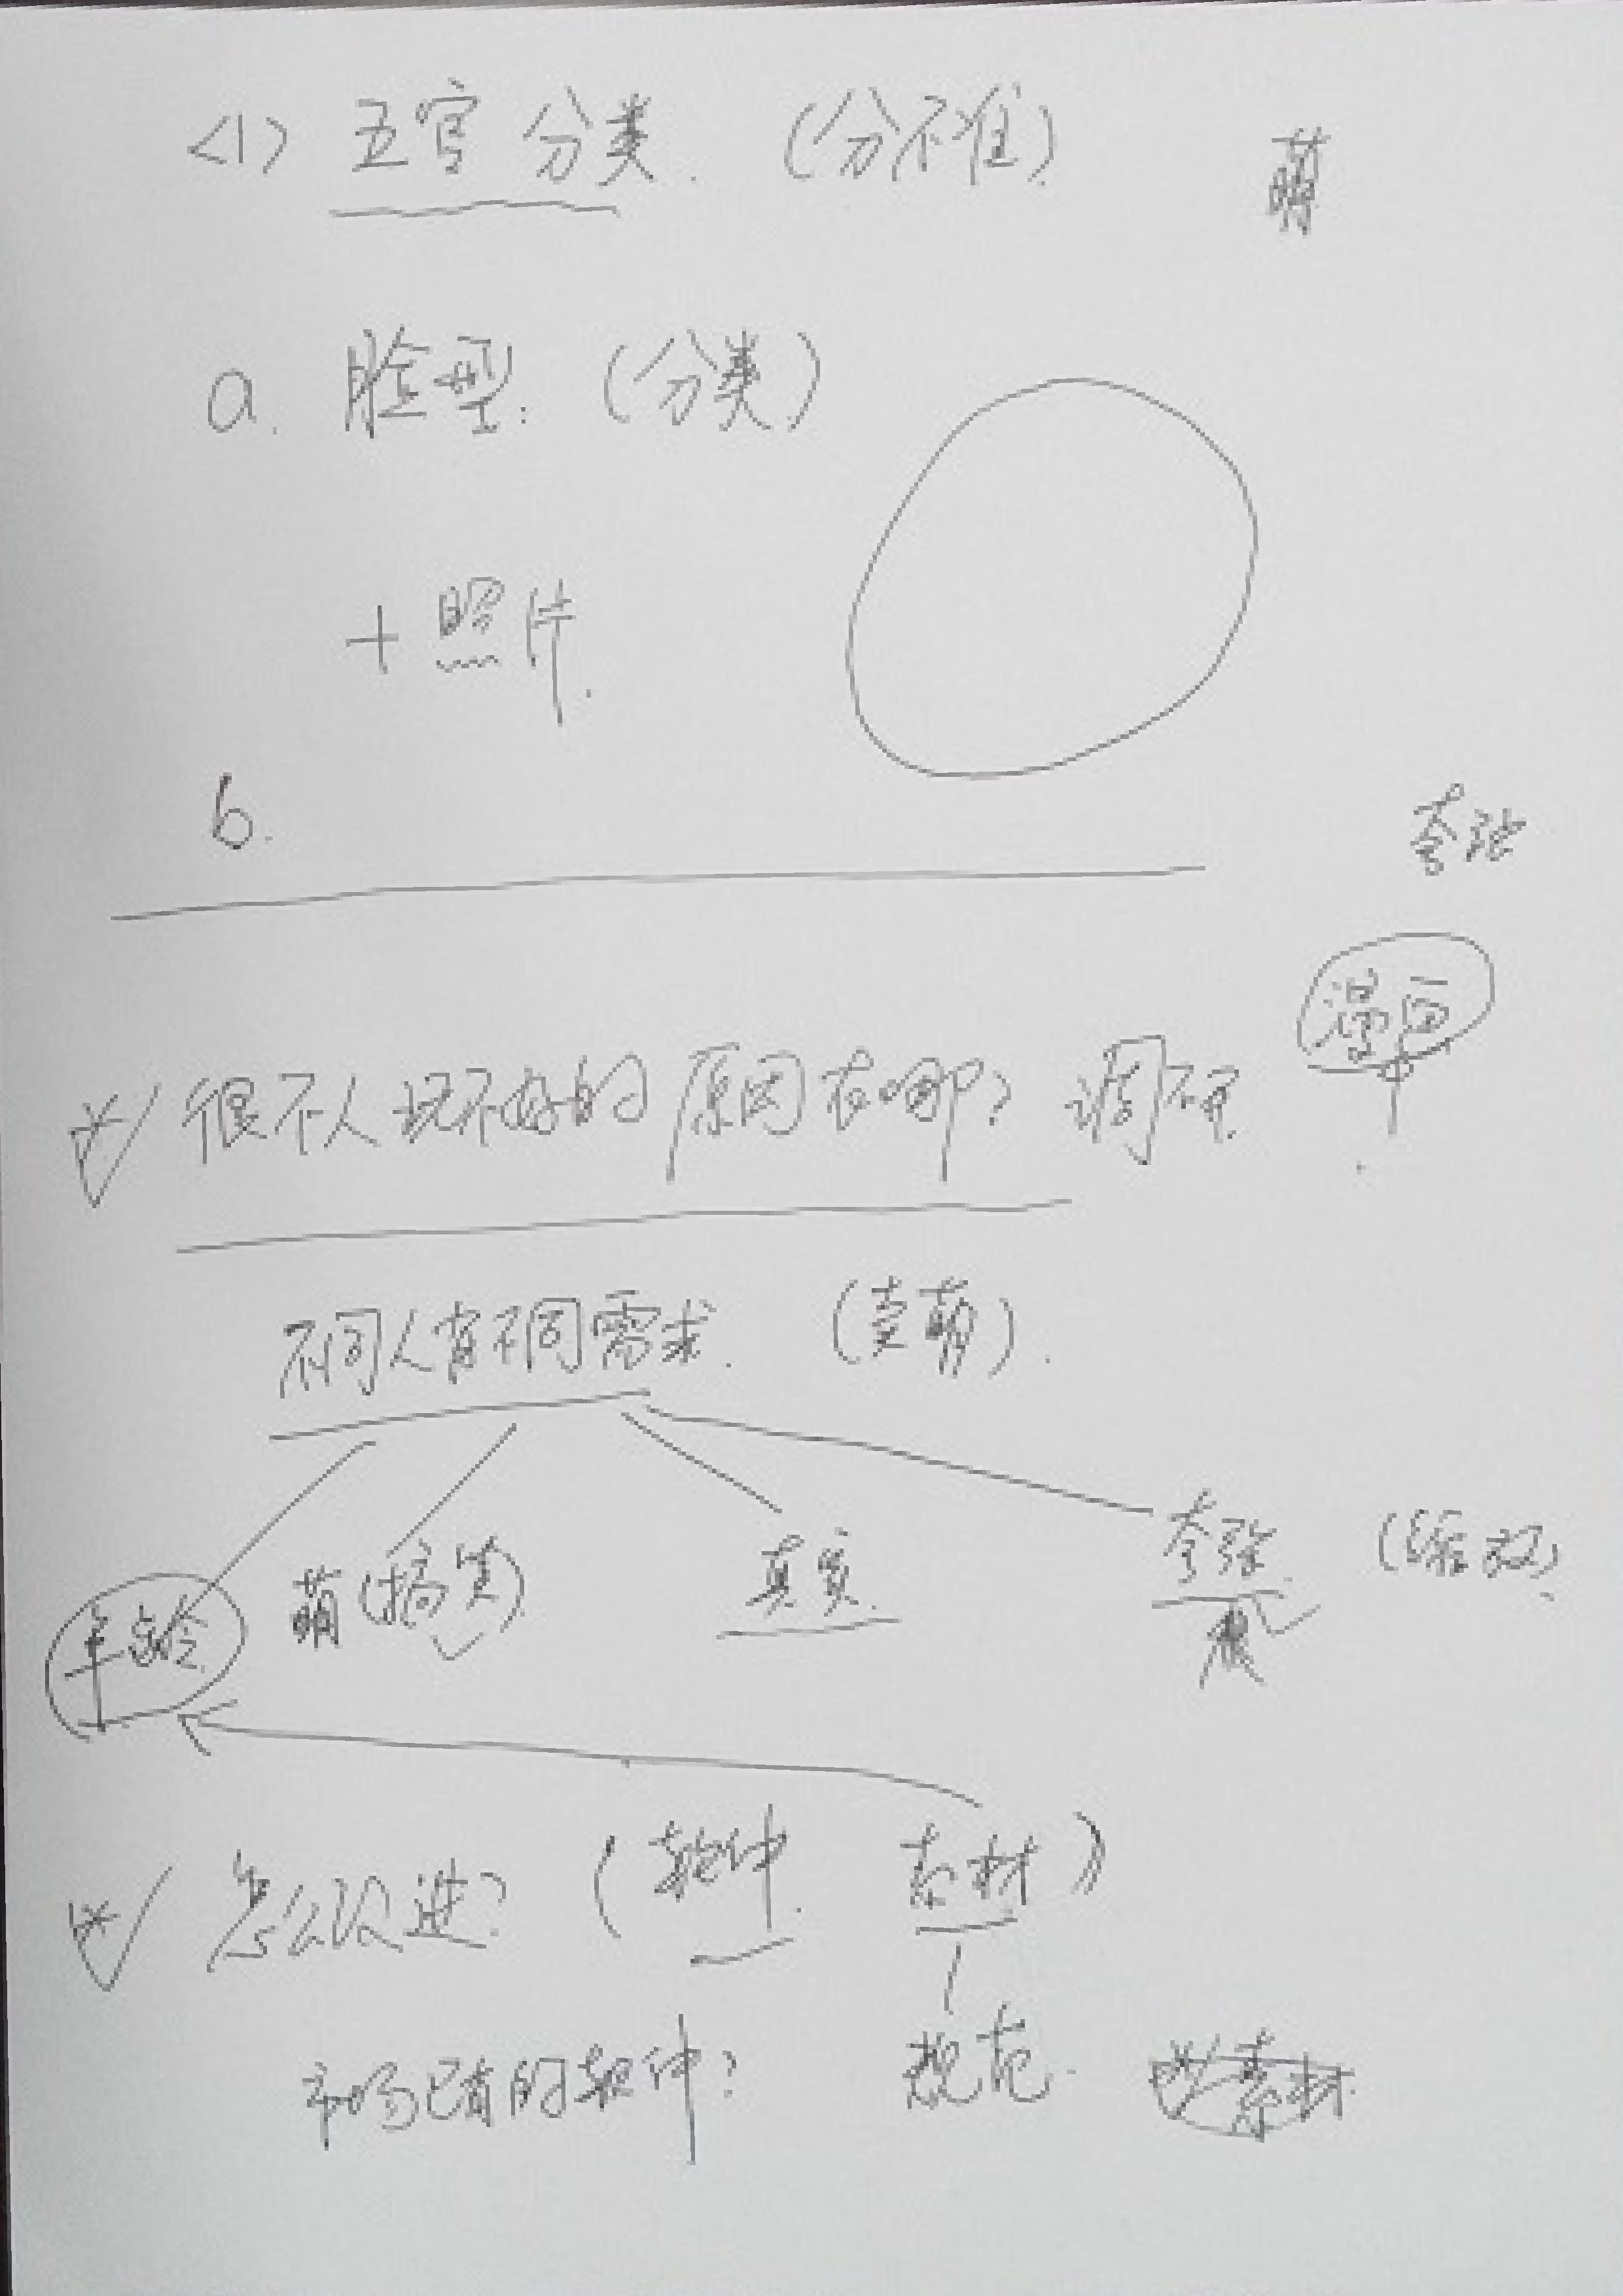 <1> 五官分类. (分不准)
萌
a. 脸型: (分类)
+ 照片.
b.
夸张
漫画
很不人玩不好的原因在哪?
不同人有不同需求. (卖萌).
年龄 萌(搞笑) 真实. 夸张
怎么改进? (软件. 素材)
市场已有的软件? 规范. 素材